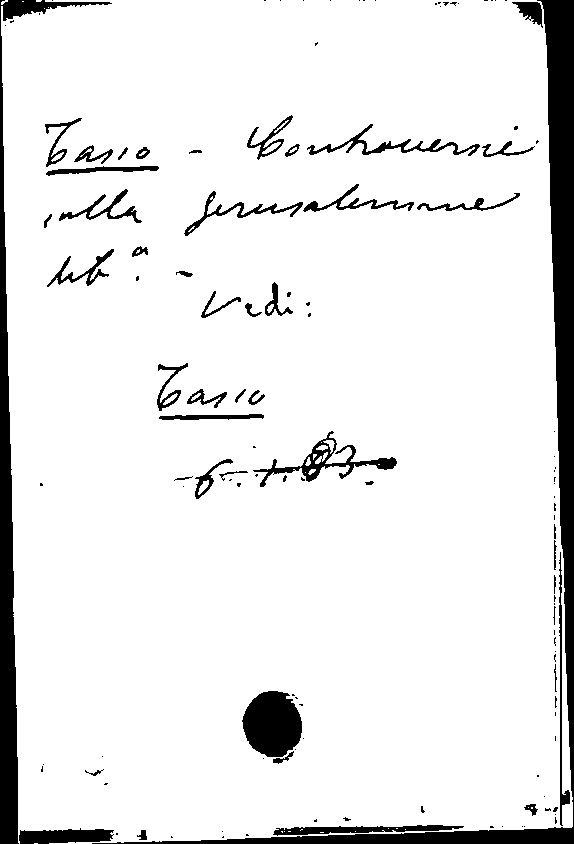 Tasso - Controversie
sulla Gerusalemme
lib.ª -
Vedi:
Tasso
6.1.83.